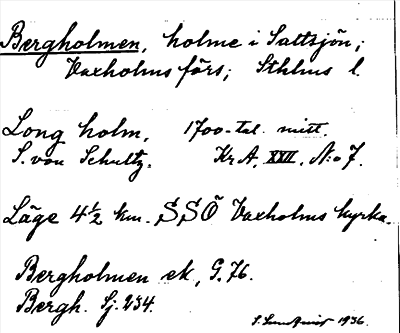 Bergholmen, holme i Saltsjön;
Vaxholms förs; Sthlms l.
Long holm, 1700-tal. mitt.
S. von Schultz. Kr A. XXII. N:o 7.
Läge 4½ km. SSÖ Vaxholms kyrka.
Bergholmen ek, G. 76.
Bergh. Sj. 234.
1936.